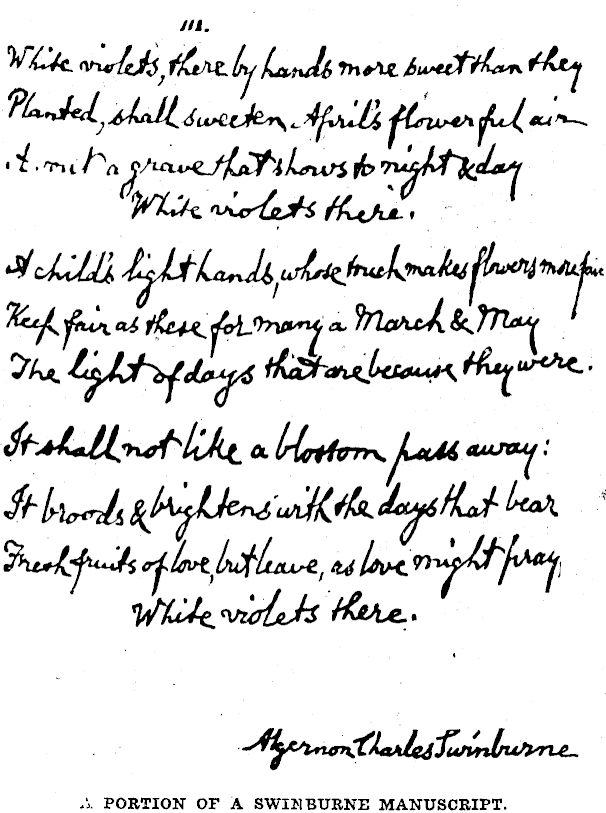 III.
White violets, there by hands more sweet than they
Planted, shall sweeten April's flowerful air
About a grave that shows to night & day
White violets there.
A child's light hands, whose touch makes flowers more fair
Keep fair as these for many a March & May
The light of days that are because they were.
It shall not like a blossom pass away:
It broods & brightens with the days that bear
Fresh fruits of love, but leave, as love might pray,
White violets there.
Algernon Charles Swinburne
A PORTION OF A SWINBURNE MANUSCRIPT.